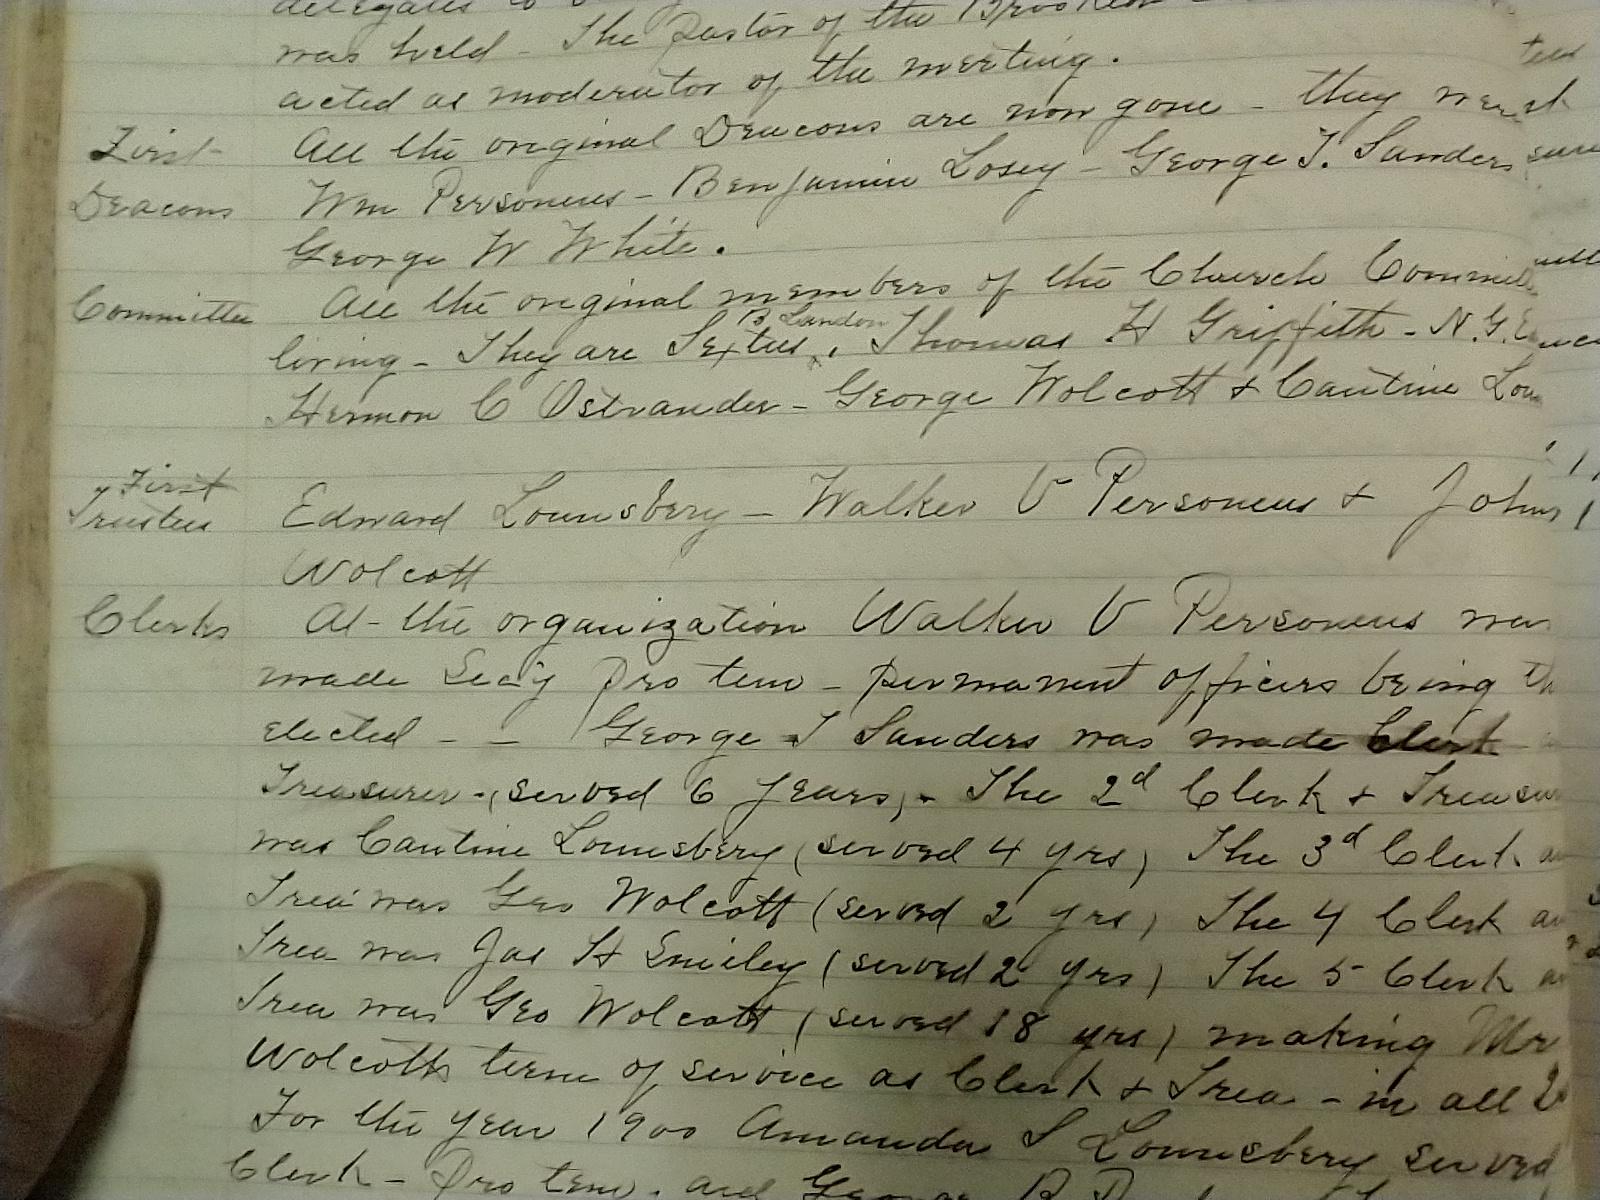 delegates to
was held - The pastor of the
acted as moderator of the meeting.
First Deacons
All the original Deacons are now gone - they were
Wm Personeus - Benjamin Losey - George T. Sanders
George W White.
Committee
All the original members of the Church
living - They are Sextus B Landon, Thomas H Griffith - N. G.
Hermon C Ostrander - George Wolcott & Cantine
First Trustees
Edward Lounsbery - Walker V Personeus & John
Wolcott
Clerks
At the organization Walker V Personeus was
made Sec'y pro tem - permanent officers being
elected - - George T Sanders was made Clerk
Treasurer - (served 6 years) - The 2d Clerk &
was Cantine Lounsbery (served 4 yrs) The 3d Clerk
Trea was Geo Wolcott (served 2 yrs) The 4 Clerk
Trea was Jas H Smiley (served 2 yrs) The 5 Clerk
Trea was Geo Wolcott (served 18 yrs) making Mr
Wolcotts term of service as Clerk & Trea - in all
For the year 1900 Amanda S Lounsbery served
Clerk - Pro tem. and